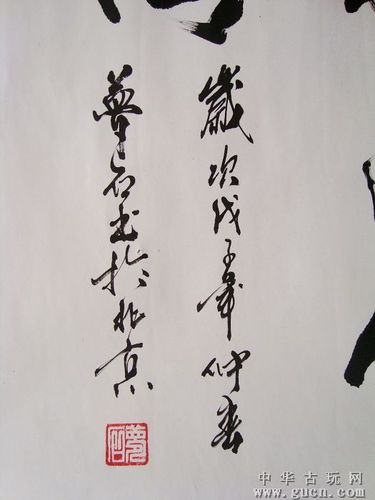 歲次戊子年仲春
夢石书於北京
夢石
中华古玩网
www.gucn.com